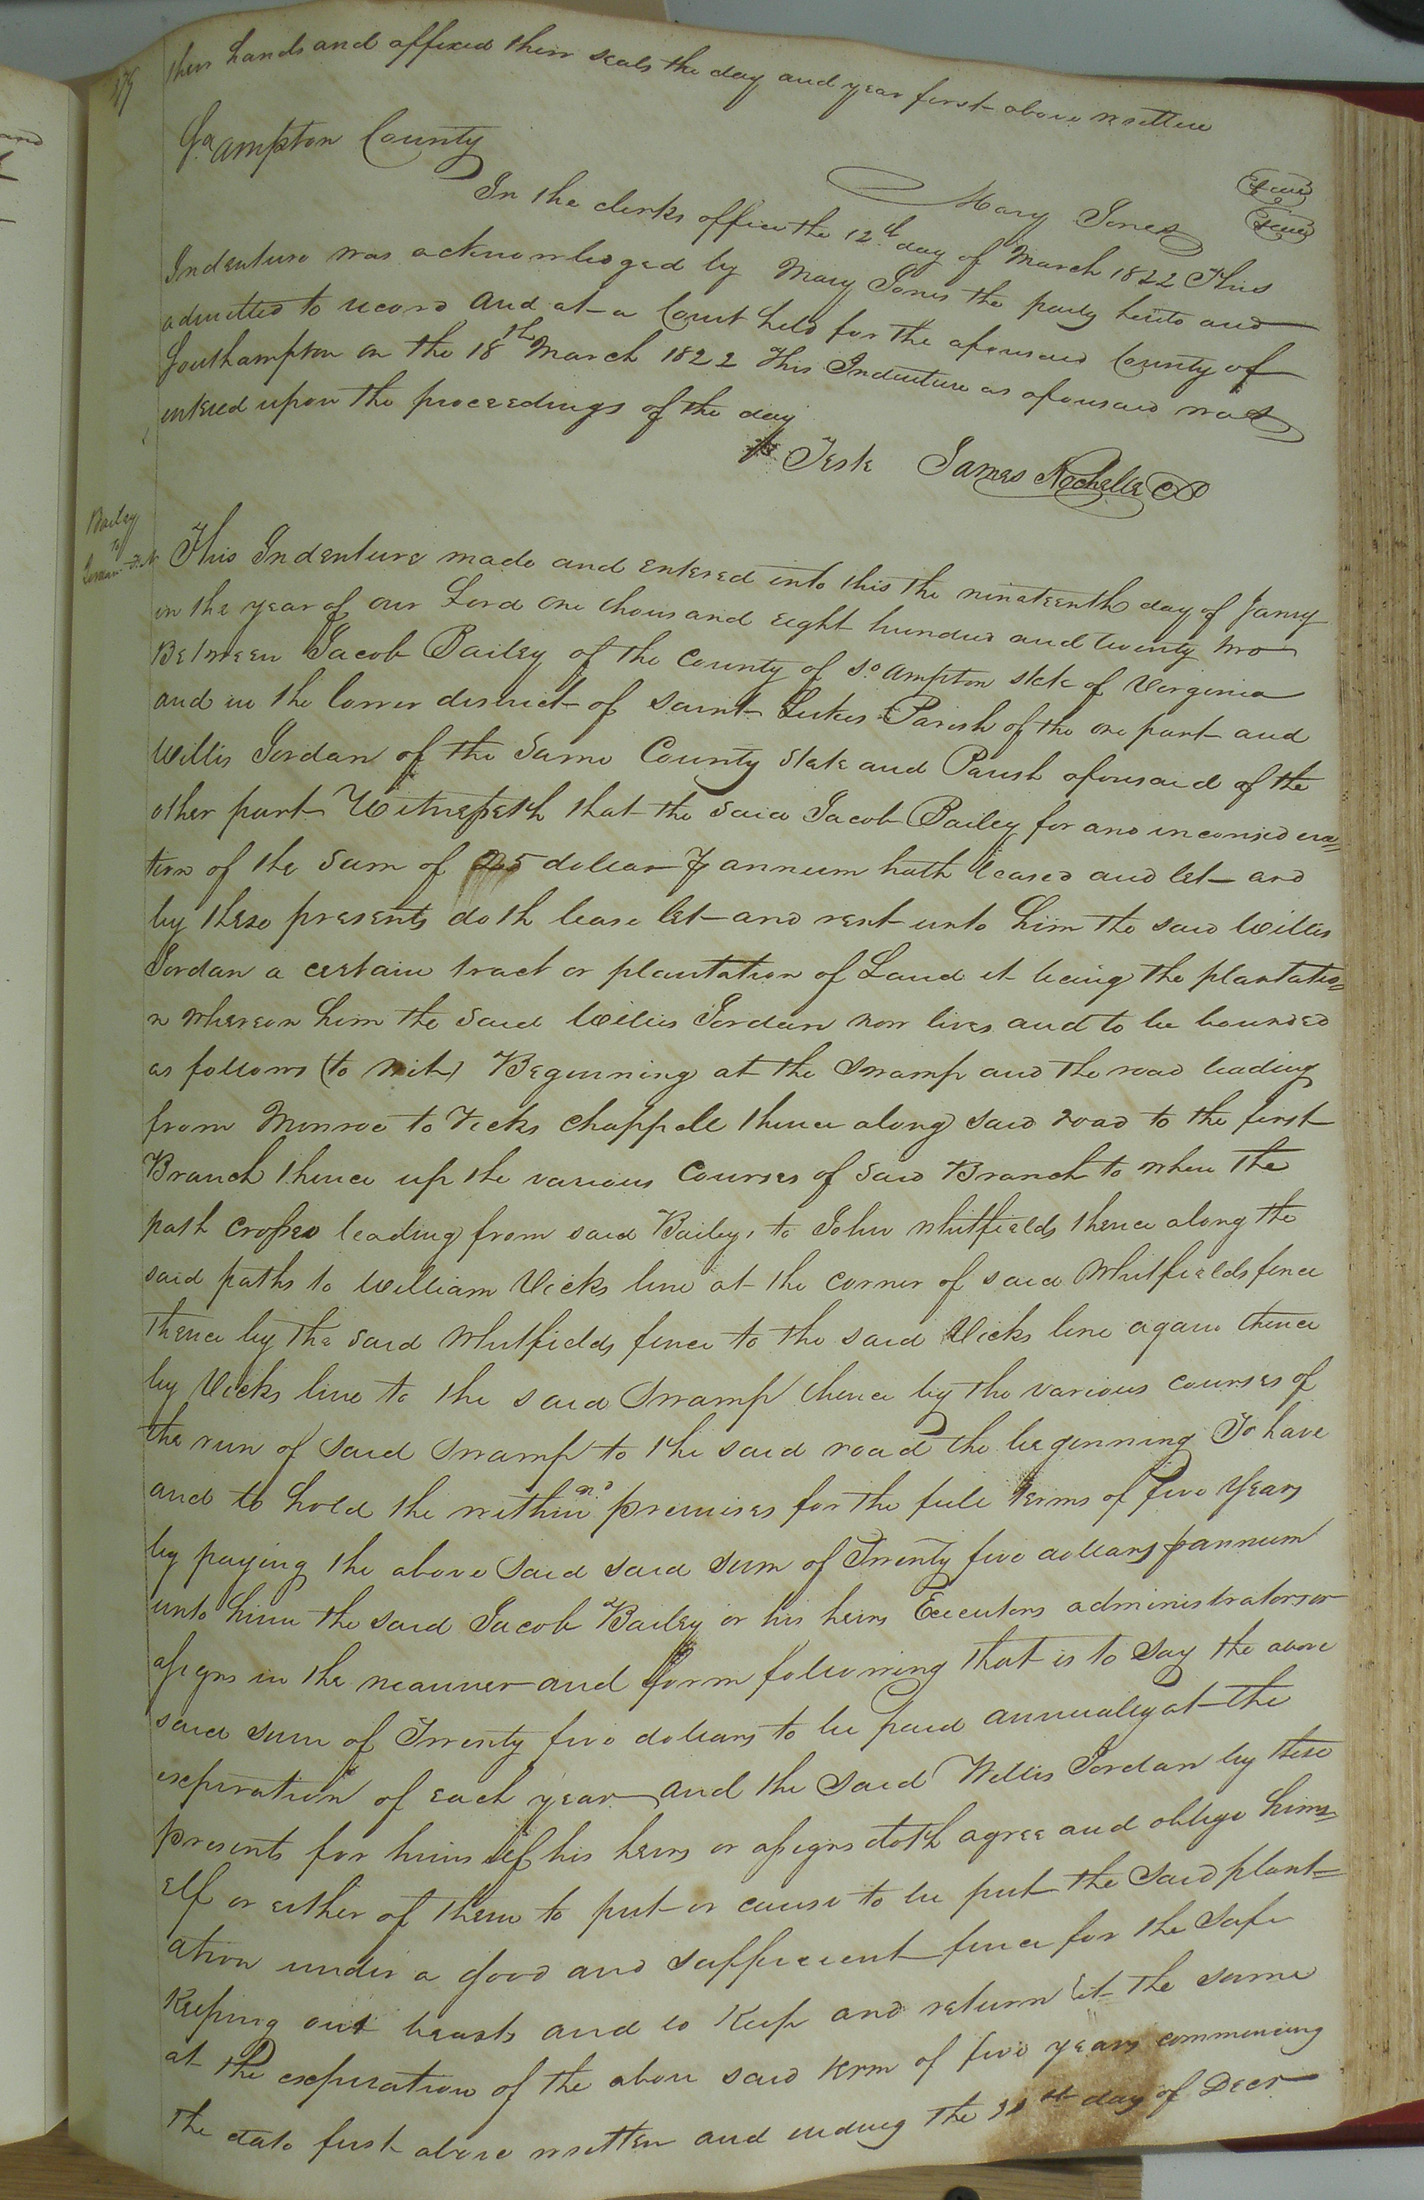 their hands and affixed their seals the day and year first above written
Mary Jones
Seal
Seal
So ampton County
In the clerks office the 12th day of March 1822 This
Indenture was acknowledged by Mary Jones the party hereto and
admitted to record and at a Court held for the aforesaid County of
Southampton on the 18th March 1822 This Indenture as aforesaid was
entered upon the proceedings of the day
Teste James Rochelle
Bailey
to
This Indenture made and entered into this the nineteenth day of Jany
in the year of our Lord one thousand eight hundred and twenty two
Between Jacob Bailey of the County of So ampton state of Virginia
and in the lower district of Saint Lukes Parish of the one part and
Willis Jordan of the Same County State and Parish aforesaid of the
other part Witnesseth that the said Jacob Bailey for and in considera=
tion of the Sum of 25 dollar P annum hath leased and let and
by these presents doth lease let and rent unto him the said Willis
Jordan a certain tract or plantation of Land it being the plantatio=
n whereon him the said Willis Jordan now lives and to be bounded
as follows (to wit) Beginning at the Swamp and the road leading
from Monroe to Vicks chappell thence along said road to the first
Branch thence up the various Courses of said Branch to where the
path crosses leading from said Bailey, to John Whitfields thence along the
said paths to William Vicks line at the corner of said Whitfields fence
thence by the said Whitfields fence to the said Vicks line again thence
by Vicks line to the said Swamp thence by the various courses of
the run of said Swamp to the said road the beginning To have
and to hold the within premises for the full terms of five Years
by paying the above said said sum of Twenty five dollars p annum
unto him the said Jacob Bailey or his heirs Executors administrators or
assigns in the manner and form following that is to say the above
said sum of Twenty five dollars to be paid annualy at the
expiration of each year and the said Willis Jordan by these
presents for himself his heirs or assigns doth agree and oblige hims=
elf or either of them to put or cause to be put the said plant=
ation under a good and sufficient fence for the safe
keeping out beasts and to keep and return it the same
at the expiration of the above said term of five years commencing
the date first above written and ending the 31st day of Decr